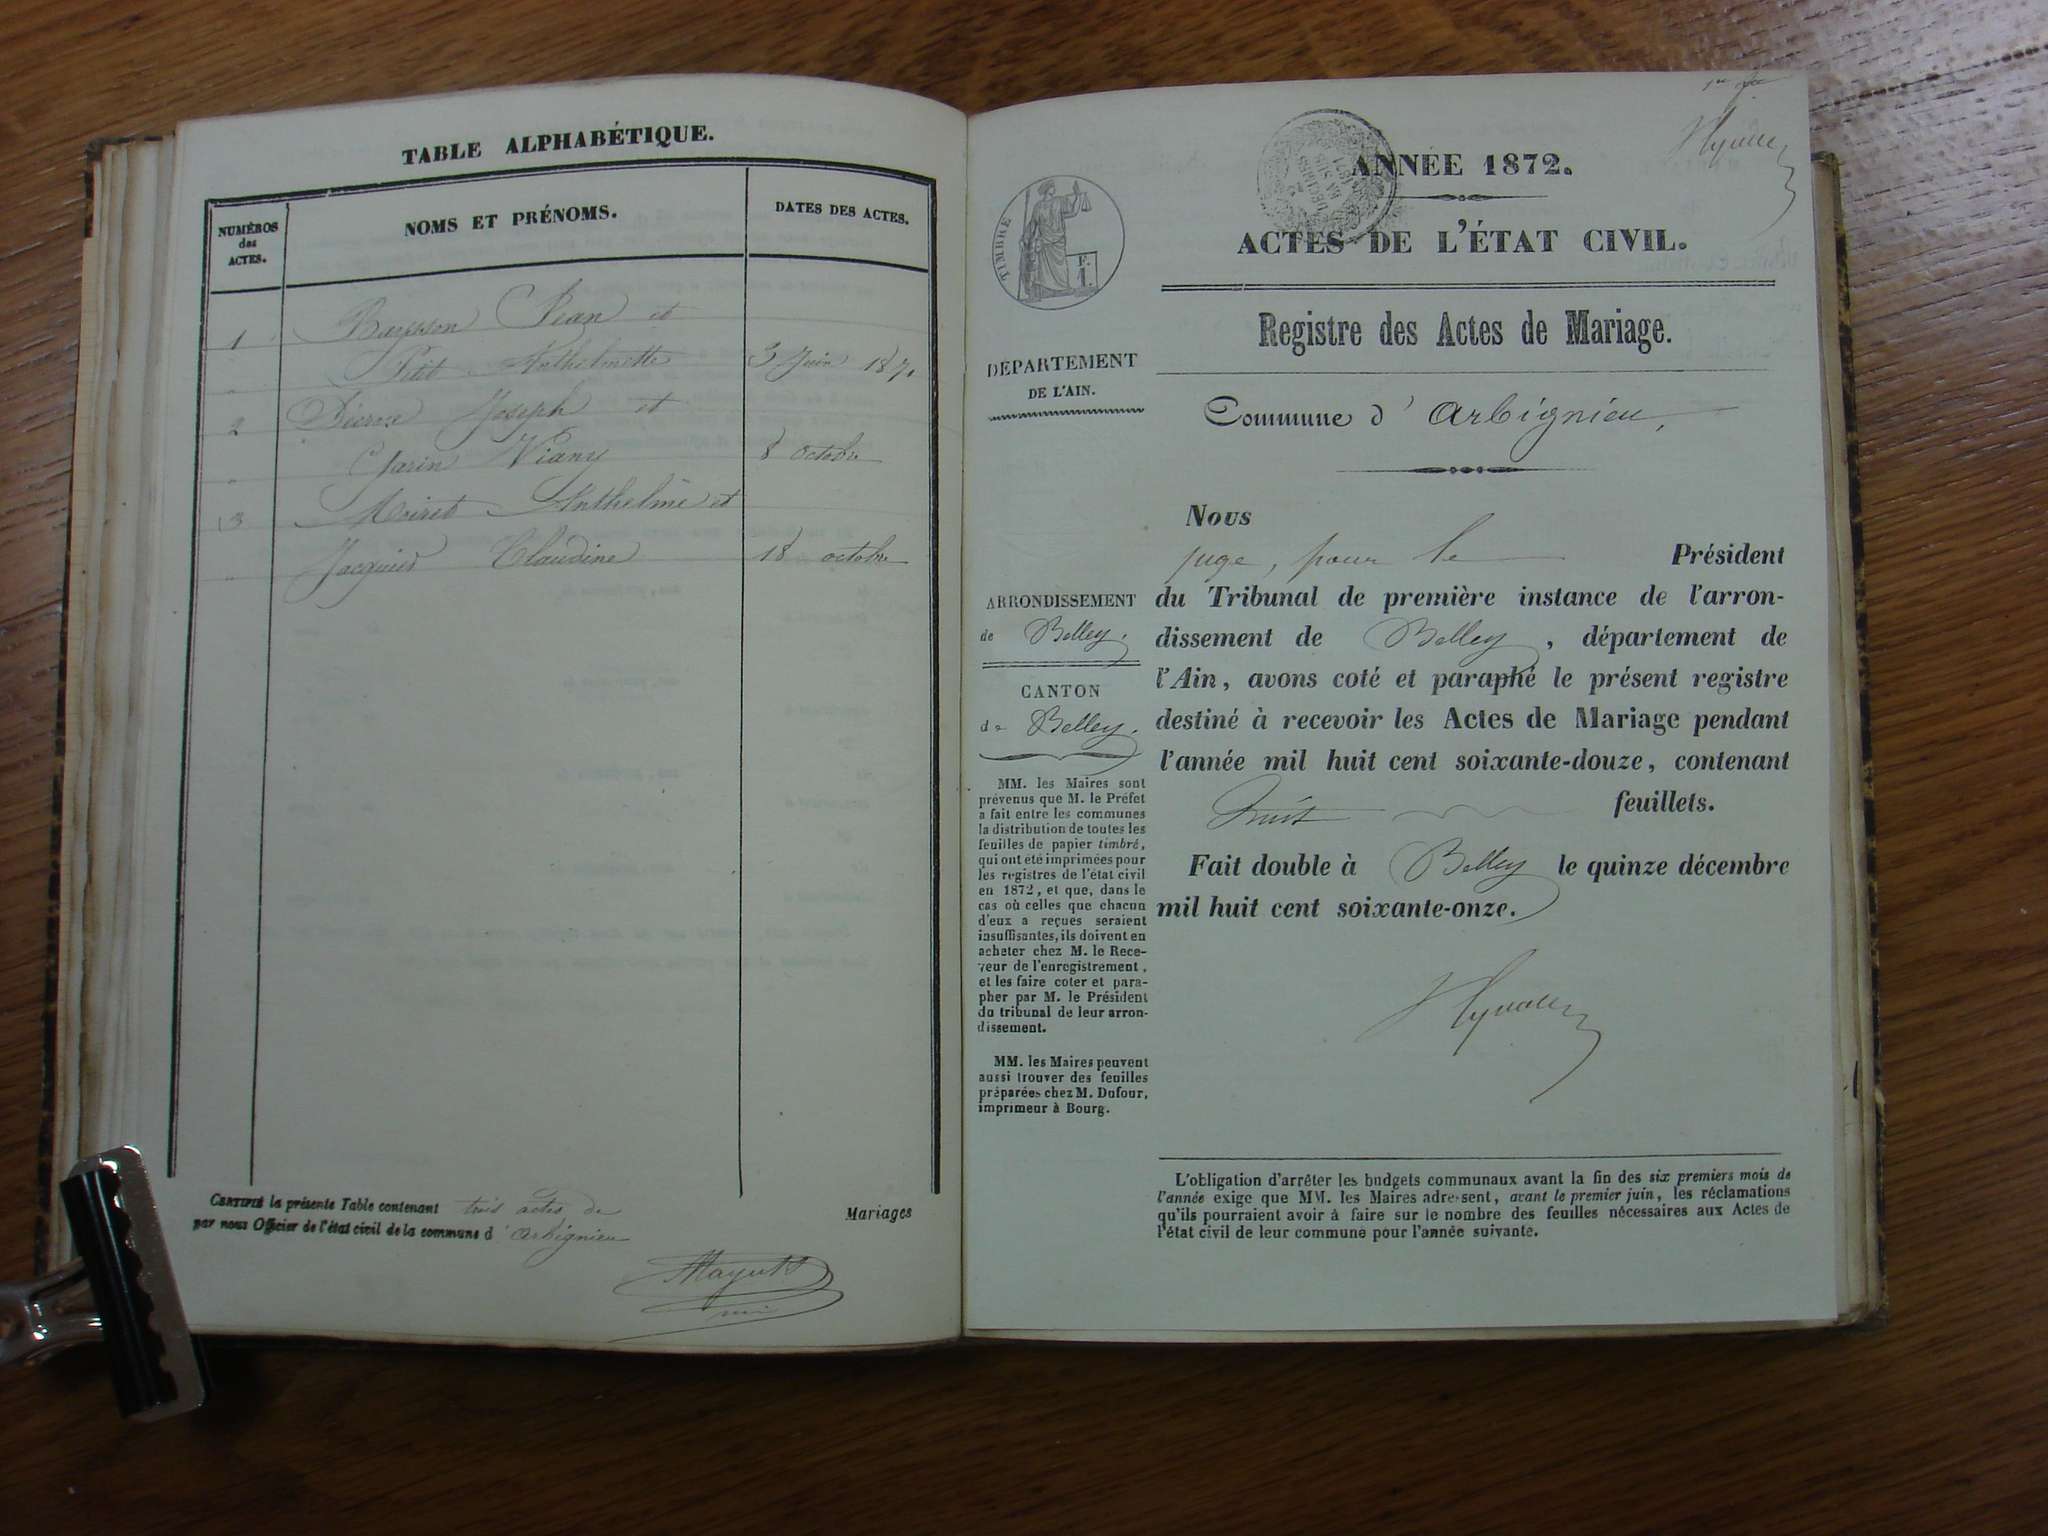 TABLE ALPHABÉTIQUE.
NUMÉROS des ACTES.
NOMS ET PRÉNOMS.
DATES DES ACTES.
1 Jean et
Petit Anthelmette 3 Juin 187.
2 Joseph et
Garin Viany 8 octobre
3 Moiret Anthelme et
Jacquier Claudine 18 octobre
CERTIFIÉ la présente Table contenant trois actes de Mariages
par nous Officier de l'état civil de la commune d'arbignieu
ANNÉE 1872.
ACTES DE L'ÉTAT CIVIL.
TIMBRE
F. 1.
Registre des Actes de Mariage.
DÉPARTEMENT
DE L'AIN.
Commune d'Arbignieu,
ARRONDISSEMENT
de Belley.
CANTON
de Belley.
MM. les Maires sont
prévenus que M. le Préfet
a fait entre les communes
la distribution de toutes les
feuilles de papier timbré,
qui ont été imprimées pour
les registres de l'état civil
en 1872, et que, dans le
cas où celles que chacun
d'eux a reçues seraient
insuffisantes, ils doivent en
acheter chez M. le Rece-
veur de l'enregistrement,
et les faire coter et para-
pher par M. le Président
du tribunal de leur arron-
dissement.
MM. les Maires peuvent
aussi trouver des feuilles
préparées chez M. Dufour,
imprimeur à Bourg.
Nous
juge, pour le Président
du Tribunal de première instance de l'arron-
dissement de Belley, département de
l'Ain, avons coté et paraphé le présent registre
destiné à recevoir les Actes de Mariage pendant
l'année mil huit cent soixante-douze, contenant
huit feuillets.
Fait double à Belley le quinze décembre
mil huit cent soixante-onze.
L'obligation d'arrêter les budgets communaux avant la fin des six premiers mois de
l'année exige que MM. les Maires adressent, avant le premier juin, les réclamations
qu'ils pourraient avoir à faire sur le nombre des feuilles nécessaires aux Actes de
l'état civil de leur commune pour l'année suivante.